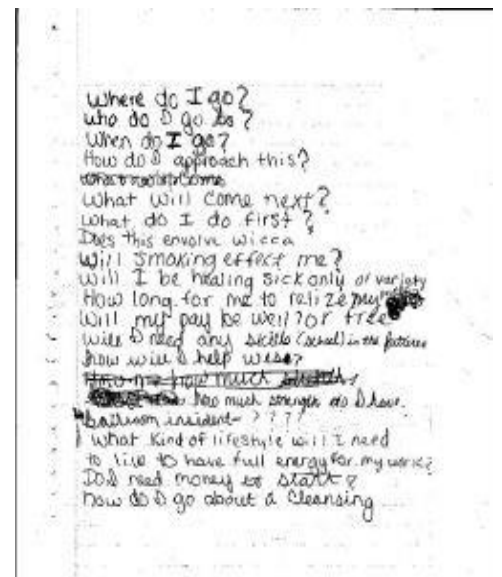 Where do I go?
who do I go to?
When do I go?
How do I approach this?
What will come next?
What do I do first?
Does this envolve wicca
Will smoking effect me?
Will I be healing sick only or variety
How long for me to relize my
Will my pay be well? or free
will I need any skills (school) in the future
how will I help
how much
how much strength do I have.
insident ????
What kind of lifestyle will I need
to live to have full energy for my work?
Do I need money to start?
how do I go about a Cleansing